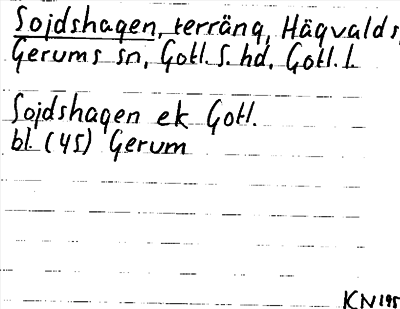 Sojdshagen, terräng, Hägvalds,
Gerums sn, Gotl. S. hd, Gotl. l.
Sojdshagen ek Gotl.
bl. (45) Gerum